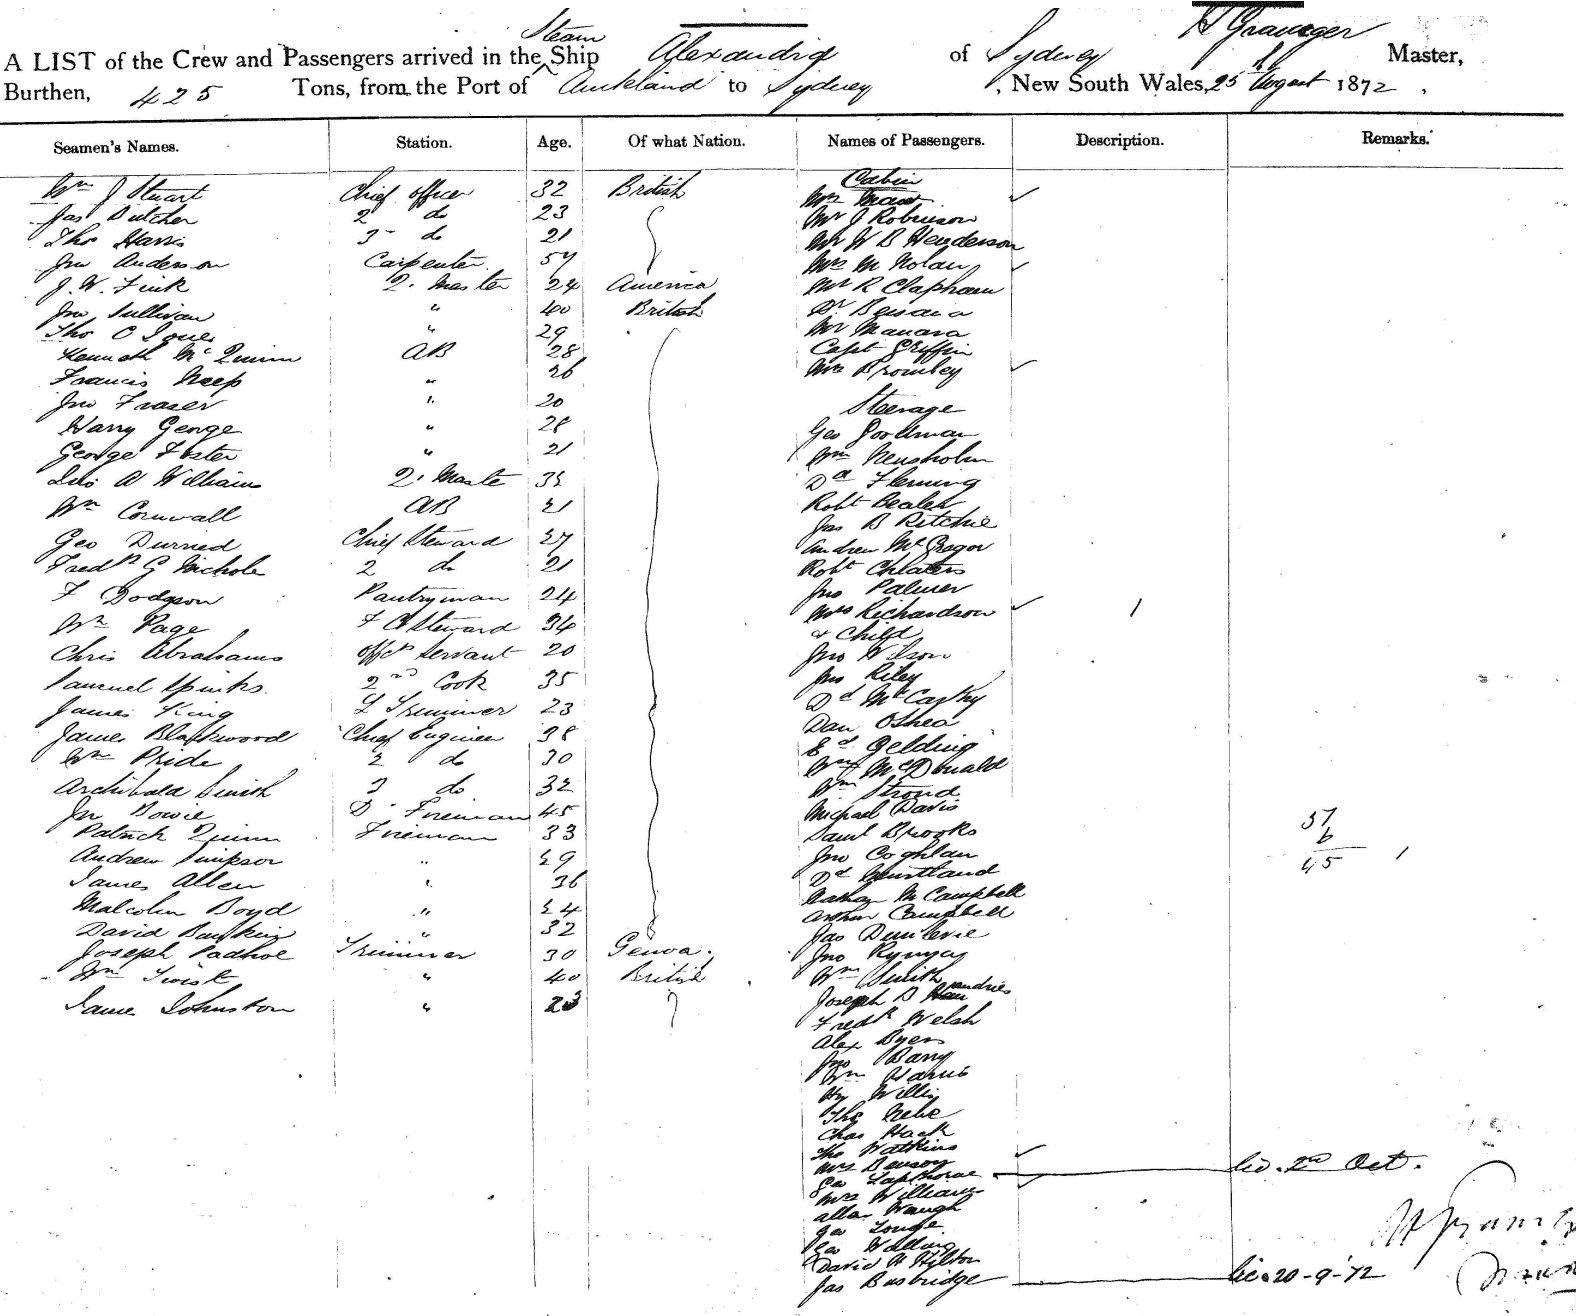 Steam
A LIST of the Crew and Passengers arrived in the Ship Alexandria of Sydney H Grainger Master,
Burthen, 425 Tons, from the Port of Auckland to Sydney, New South Wales, 25th August 1872,
Seamen's Names. Station. Age. Of what Nation. Names of Passengers. Description. Remarks.
Wm J Stuart Chief officer 32 British
Jas Butcher 2 do 23
Thos Harris 3 do 21
Jno Anderson Carpenter 57
J. W. Fink 2. Master 24 America
Jno Sullivan " 40 British
Thos O Jones " 29
Kenneth McQuinn AB 28
Francis Neep " 26
Jno Fraser " 20
Harry George " 28
George Foster " 21
A Williams 2. Maste
Wm Cornwall AB 21
Geo Durried Chief Steward 27
Fredk G Nichols 2 do 21
F Dodgson Pantryman 24
Wm Page F C Steward 34
Chris Abrahams offcrs servant 20
Samuel Spinks. 2nd Cook 35
James King Trimmer 23
James Blackwood Chief Engineer 38
Wm Pride 2 do 30
Archibald Smith 3 do 32
Jno Bowie D Fireman 45
Patrick Quinn Fireman 33
Andrew Simpson " 29
James Allen " 36
Malcolm Boyd " 24
David " 32
Joseph Padhoe Trimmer 30 Genoa.
Wm Twist " 40 British
James Johnston " 23
Cabin
Mrs
Mr J Robinson
Mr W B Henderson
Mrs M Nolan
Mr R Clapham
Dr
Mr Manara
Capt Griffin
Mrs Bromley
Steerage
Geo Goodman
Wm Neusholm
Dd Fleming
Robt Bealek
Jas B Ritchie
Andrew McGregor
Robt Cheaters
Jno Palmer
Mrs Richardson 1
& Child
Jno Wilson
Jno Riley
Dd McCarthy
Dan OShea
Ed Gelding
Wm McDonald
Wm Stroud
Michael Davis
Saml Brooks
Jno Coghlan
Dd
Nathan M Campbell
Arthur Campbell
Jas Dunlevie
Jno
Wm Smith
Joseph B Handries
Fredk Welsh
Alex Byers
Jno Barry
Wm Harris
Hy Willis
Thos Nebe
Chas Hack
Thos Watkins
Mrs Benson
Geo Lapthorne lic. 2nd Oct.
Mrs Williams
Allan Waugh
Geo Longe
Geo Walling
David H Hilton
Jas Busbridge lic. 20-9-72
6
45 1